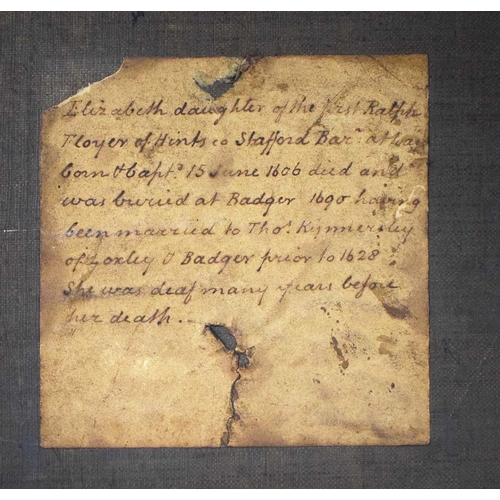 Elizabeth daughter of the first Ralph
Floyer of Hints co Stafford Barr. at law
born & bapt.d 15 June 1606 died and
was buried at Badger 1690 having
been married to Tho.s Kynnersley
of Loxley & Badger prior to 1628
She was deaf many years before
her death.